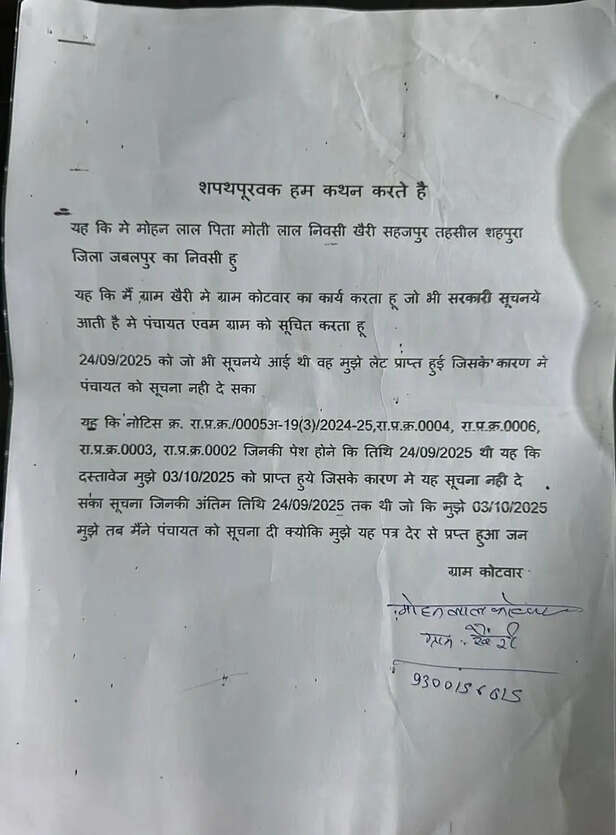 शपथपूरवक हम कथन करते है
यह कि मे मोहन लाल पिता मोती लाल निवसी खैरी सहजपुर तहसील शहपुरा
जिला जबलपुर का निवसी हु
यह कि मैं ग्राम खैरी मे ग्राम कोटवार का कार्य करता हू जो भी सरकारी सूचनये
आती है मे पंचायत एवम ग्राम को सूचित करता हू
24/09/2025 को जो भी सूचनये आई थी वह मुझे लेट प्राप्त हुई जिसके कारण मे
पंचायत को सूचना नही दे सका
यह कि नोटिस क्र. रा.प्र.क्र./0005अ-19(3)/2024-25,रा.प्र.क्र.0004, रा.प्र.क्र.0006,
रा.प्र.क्र.0003, रा.प्र.क्र.0002 जिनकी पेश होने कि तिथि 24/09/2025 थी यह कि
दस्तावेज मुझे 03/10/2025 को प्राप्त हुये जिसके कारण मे यह सूचना नही दे
सका सूचना जिनकी अंतिम तिथि 24/09/2025 तक थी जो कि मुझे 03/10/2025
मुझे तब मैंने पंचायत को सूचना दी क्योकि मुझे यह पत्र देर से प्रप्त हुआ जन
ग्राम कोटवार
मोहनलाल कोटवार
ग्राम . खैरी